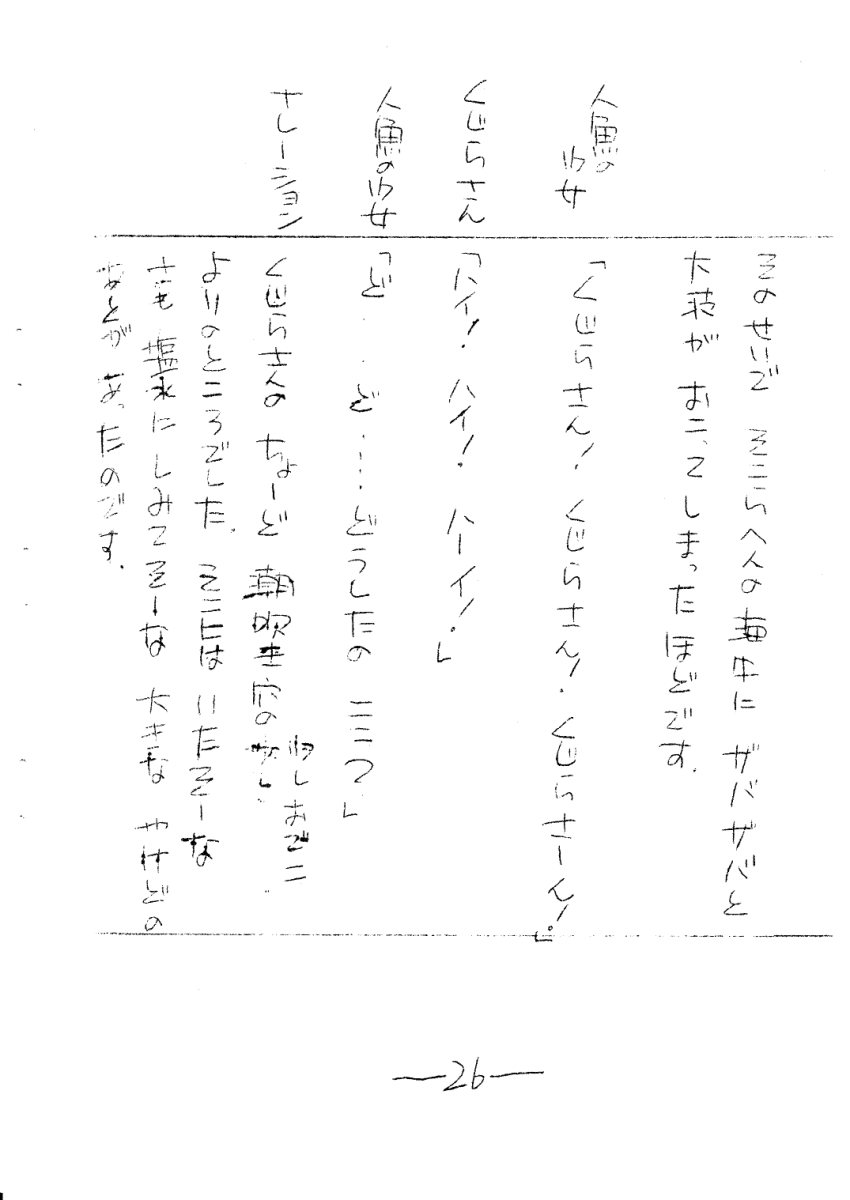 そのせいで そこらへんの 海中に ザバザバと
大波が おこってしまった ほどです.
人魚の
少女
「くじらさん! くじらさん! くじらさーん!」
くじらさん
「ハイ! ハイ! ハーイ!」
人魚の少女
「ど・・ど・・・・どうしたの ここ?」
ナレーション
くじらさんの ちょーど 潮吹き穴の
少しおでこ
よりのところでした. そこには いたそーな
さも 塩水に しみてそーな 大きな やけどの
あとが あったのです.
—26—